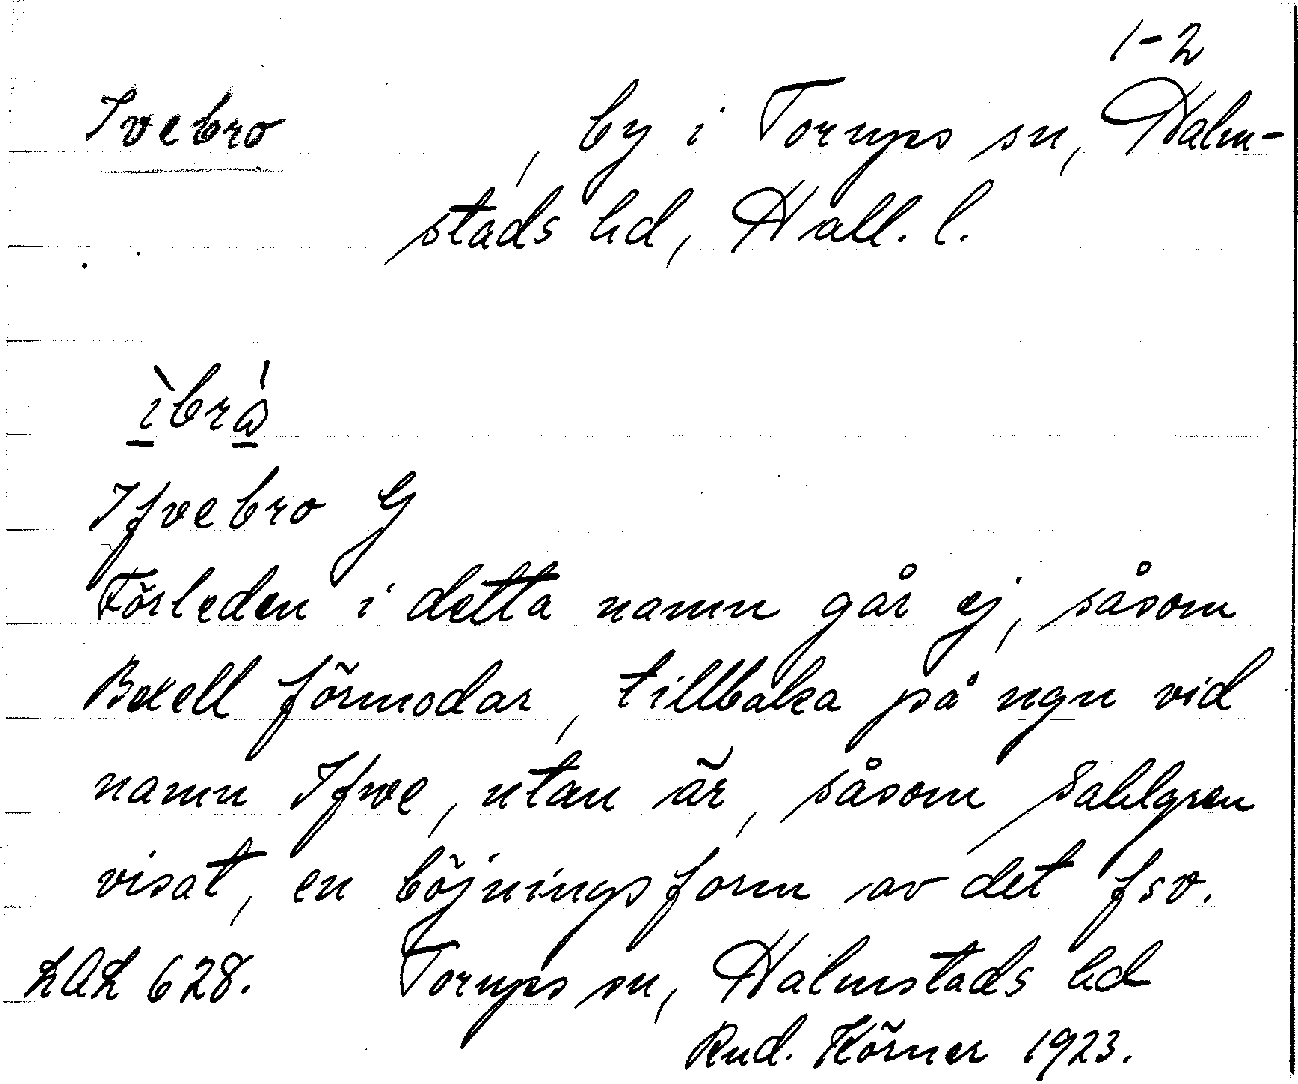 1-2
Ivebro , by i Torups sn, Halm-
stads hd, Hall. l.
ìbrá
Ifvebro G
Förleden i detta namn går ej, såsom
Bexell förmodar, tillbaka på ngn vid
namn Ifwe, utan är, såsom Sahlgren
visat, en böjningsform av det fsv.
LAL 628. Torups sn, Halmstads hd
Rud. Körner 1923.